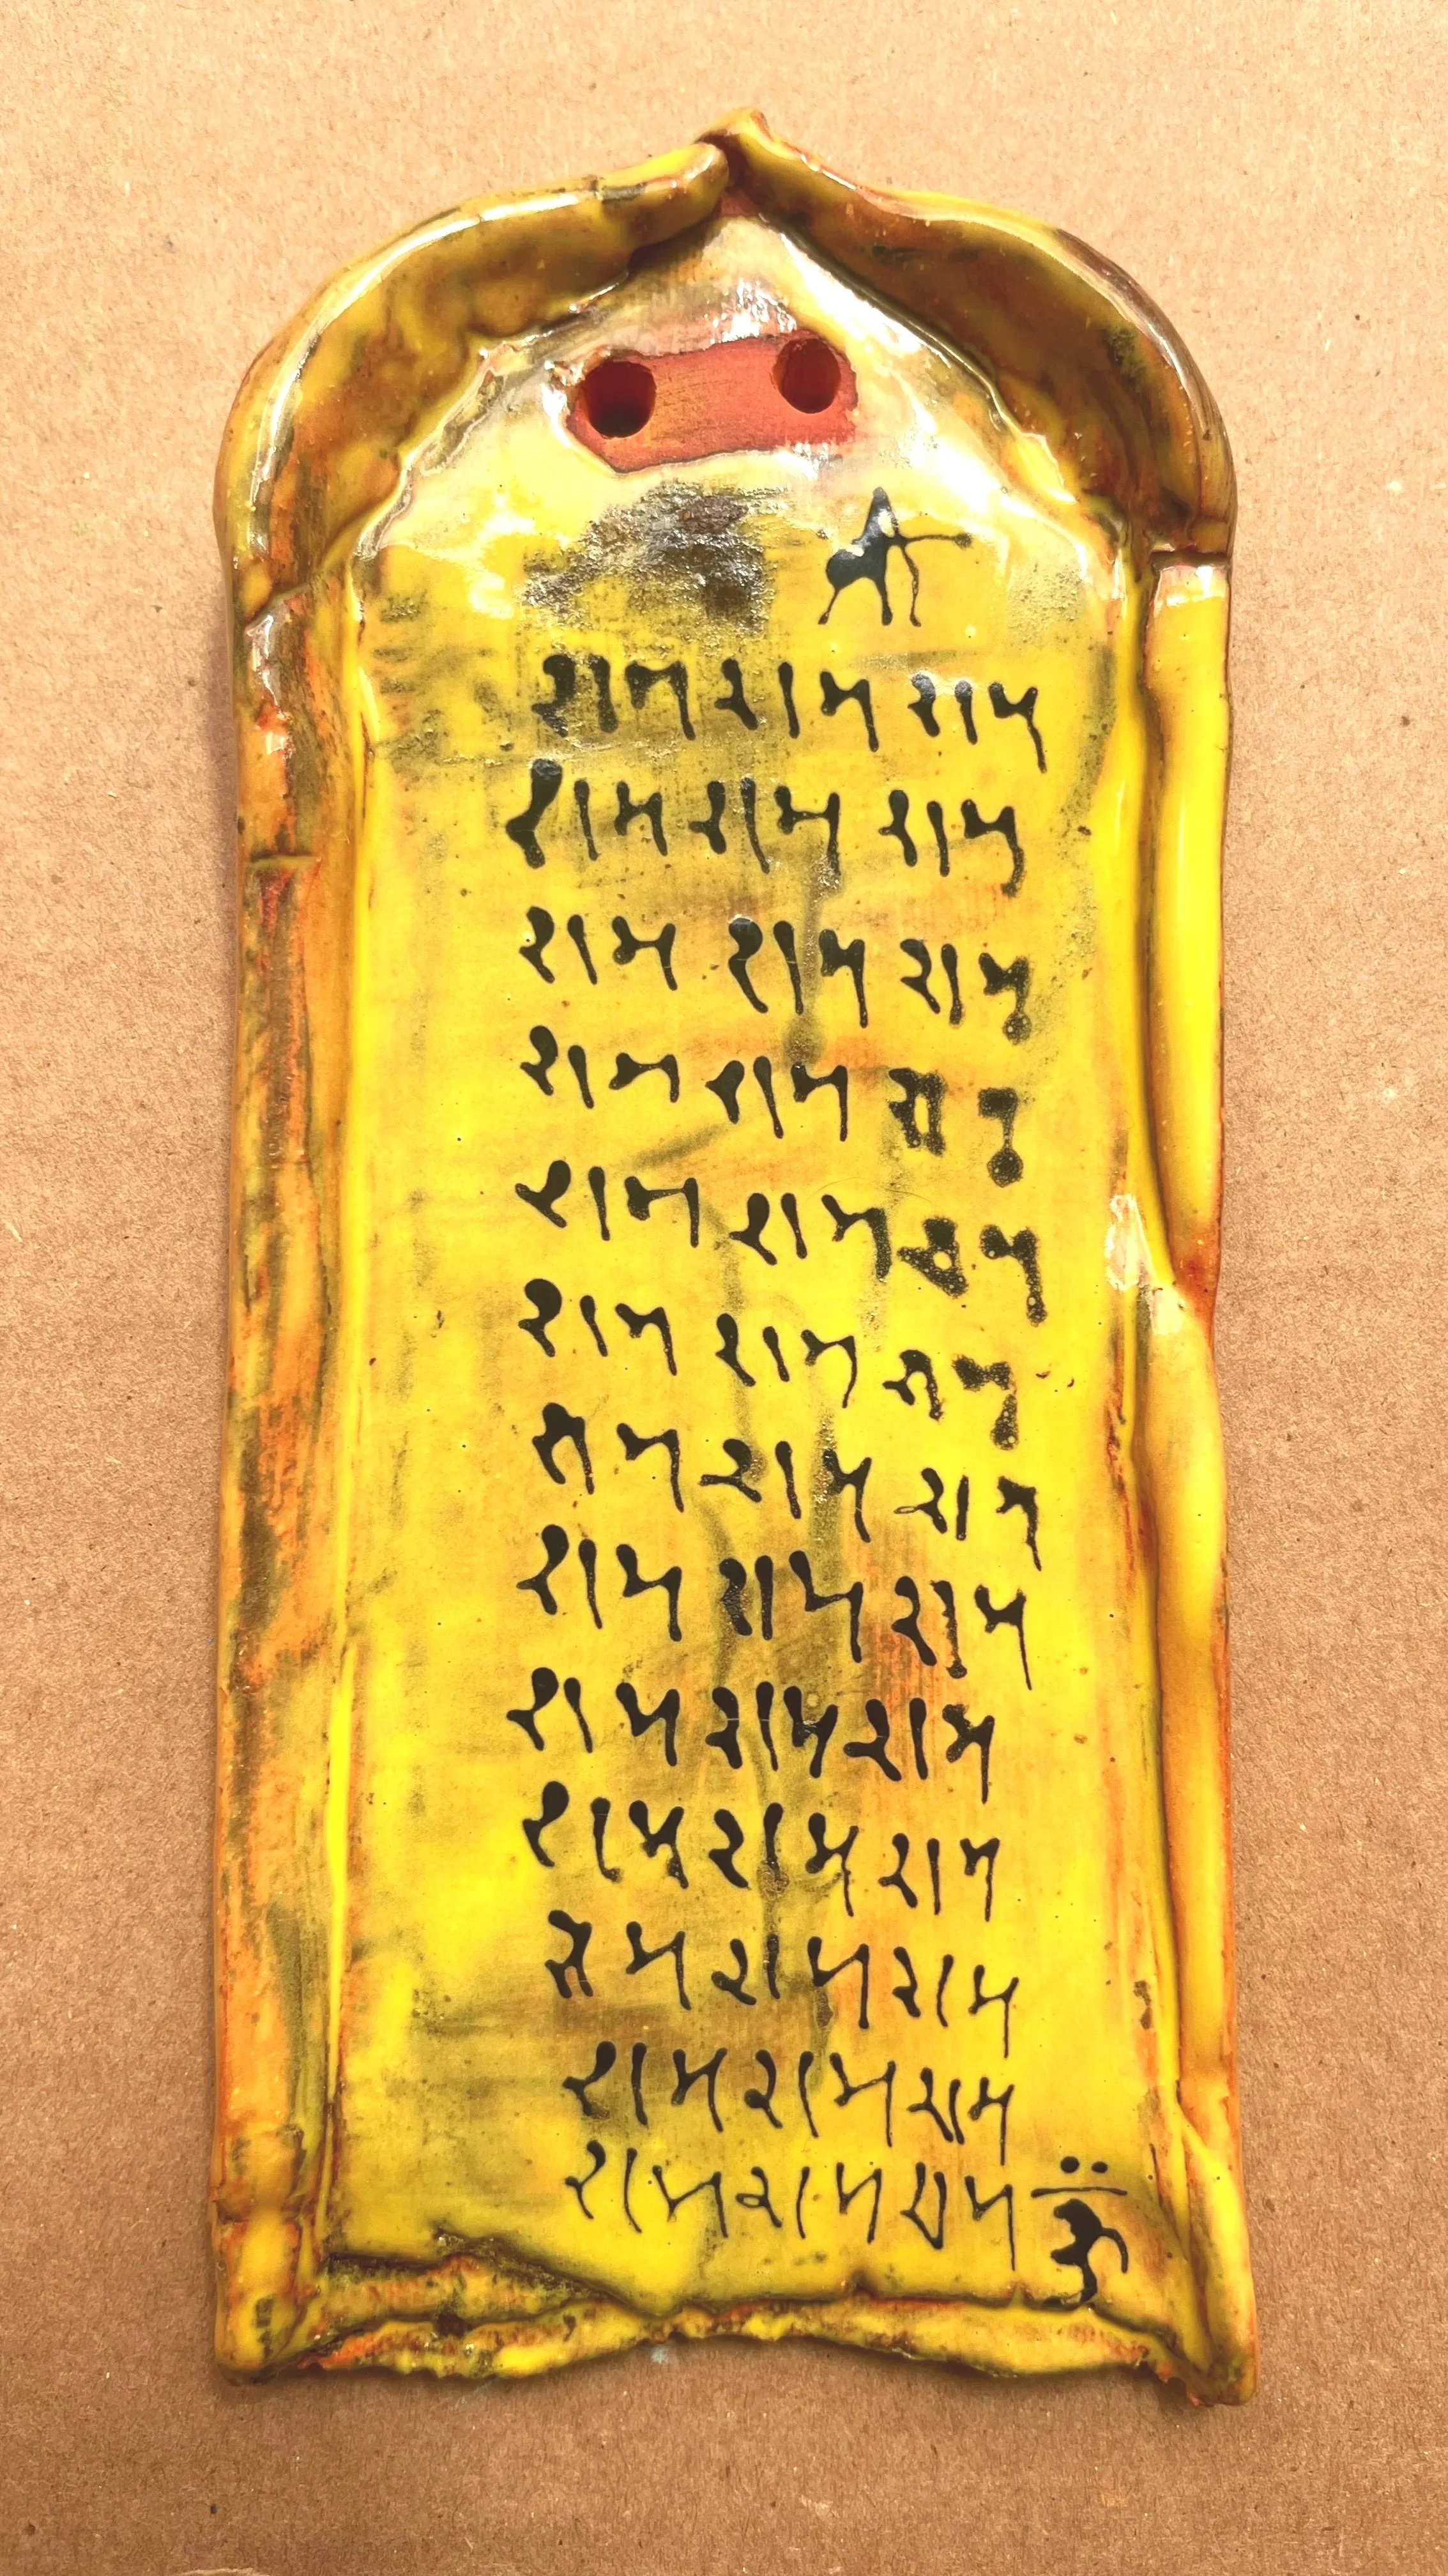 राम राम राम
राम राम राम
राम राम राम
राम राम राम
राम राम राम
राम राम राम
राम राम राम
राम राम राम
राम राम राम
राम राम राम
राम राम राम
राम राम राम
राम राम राम